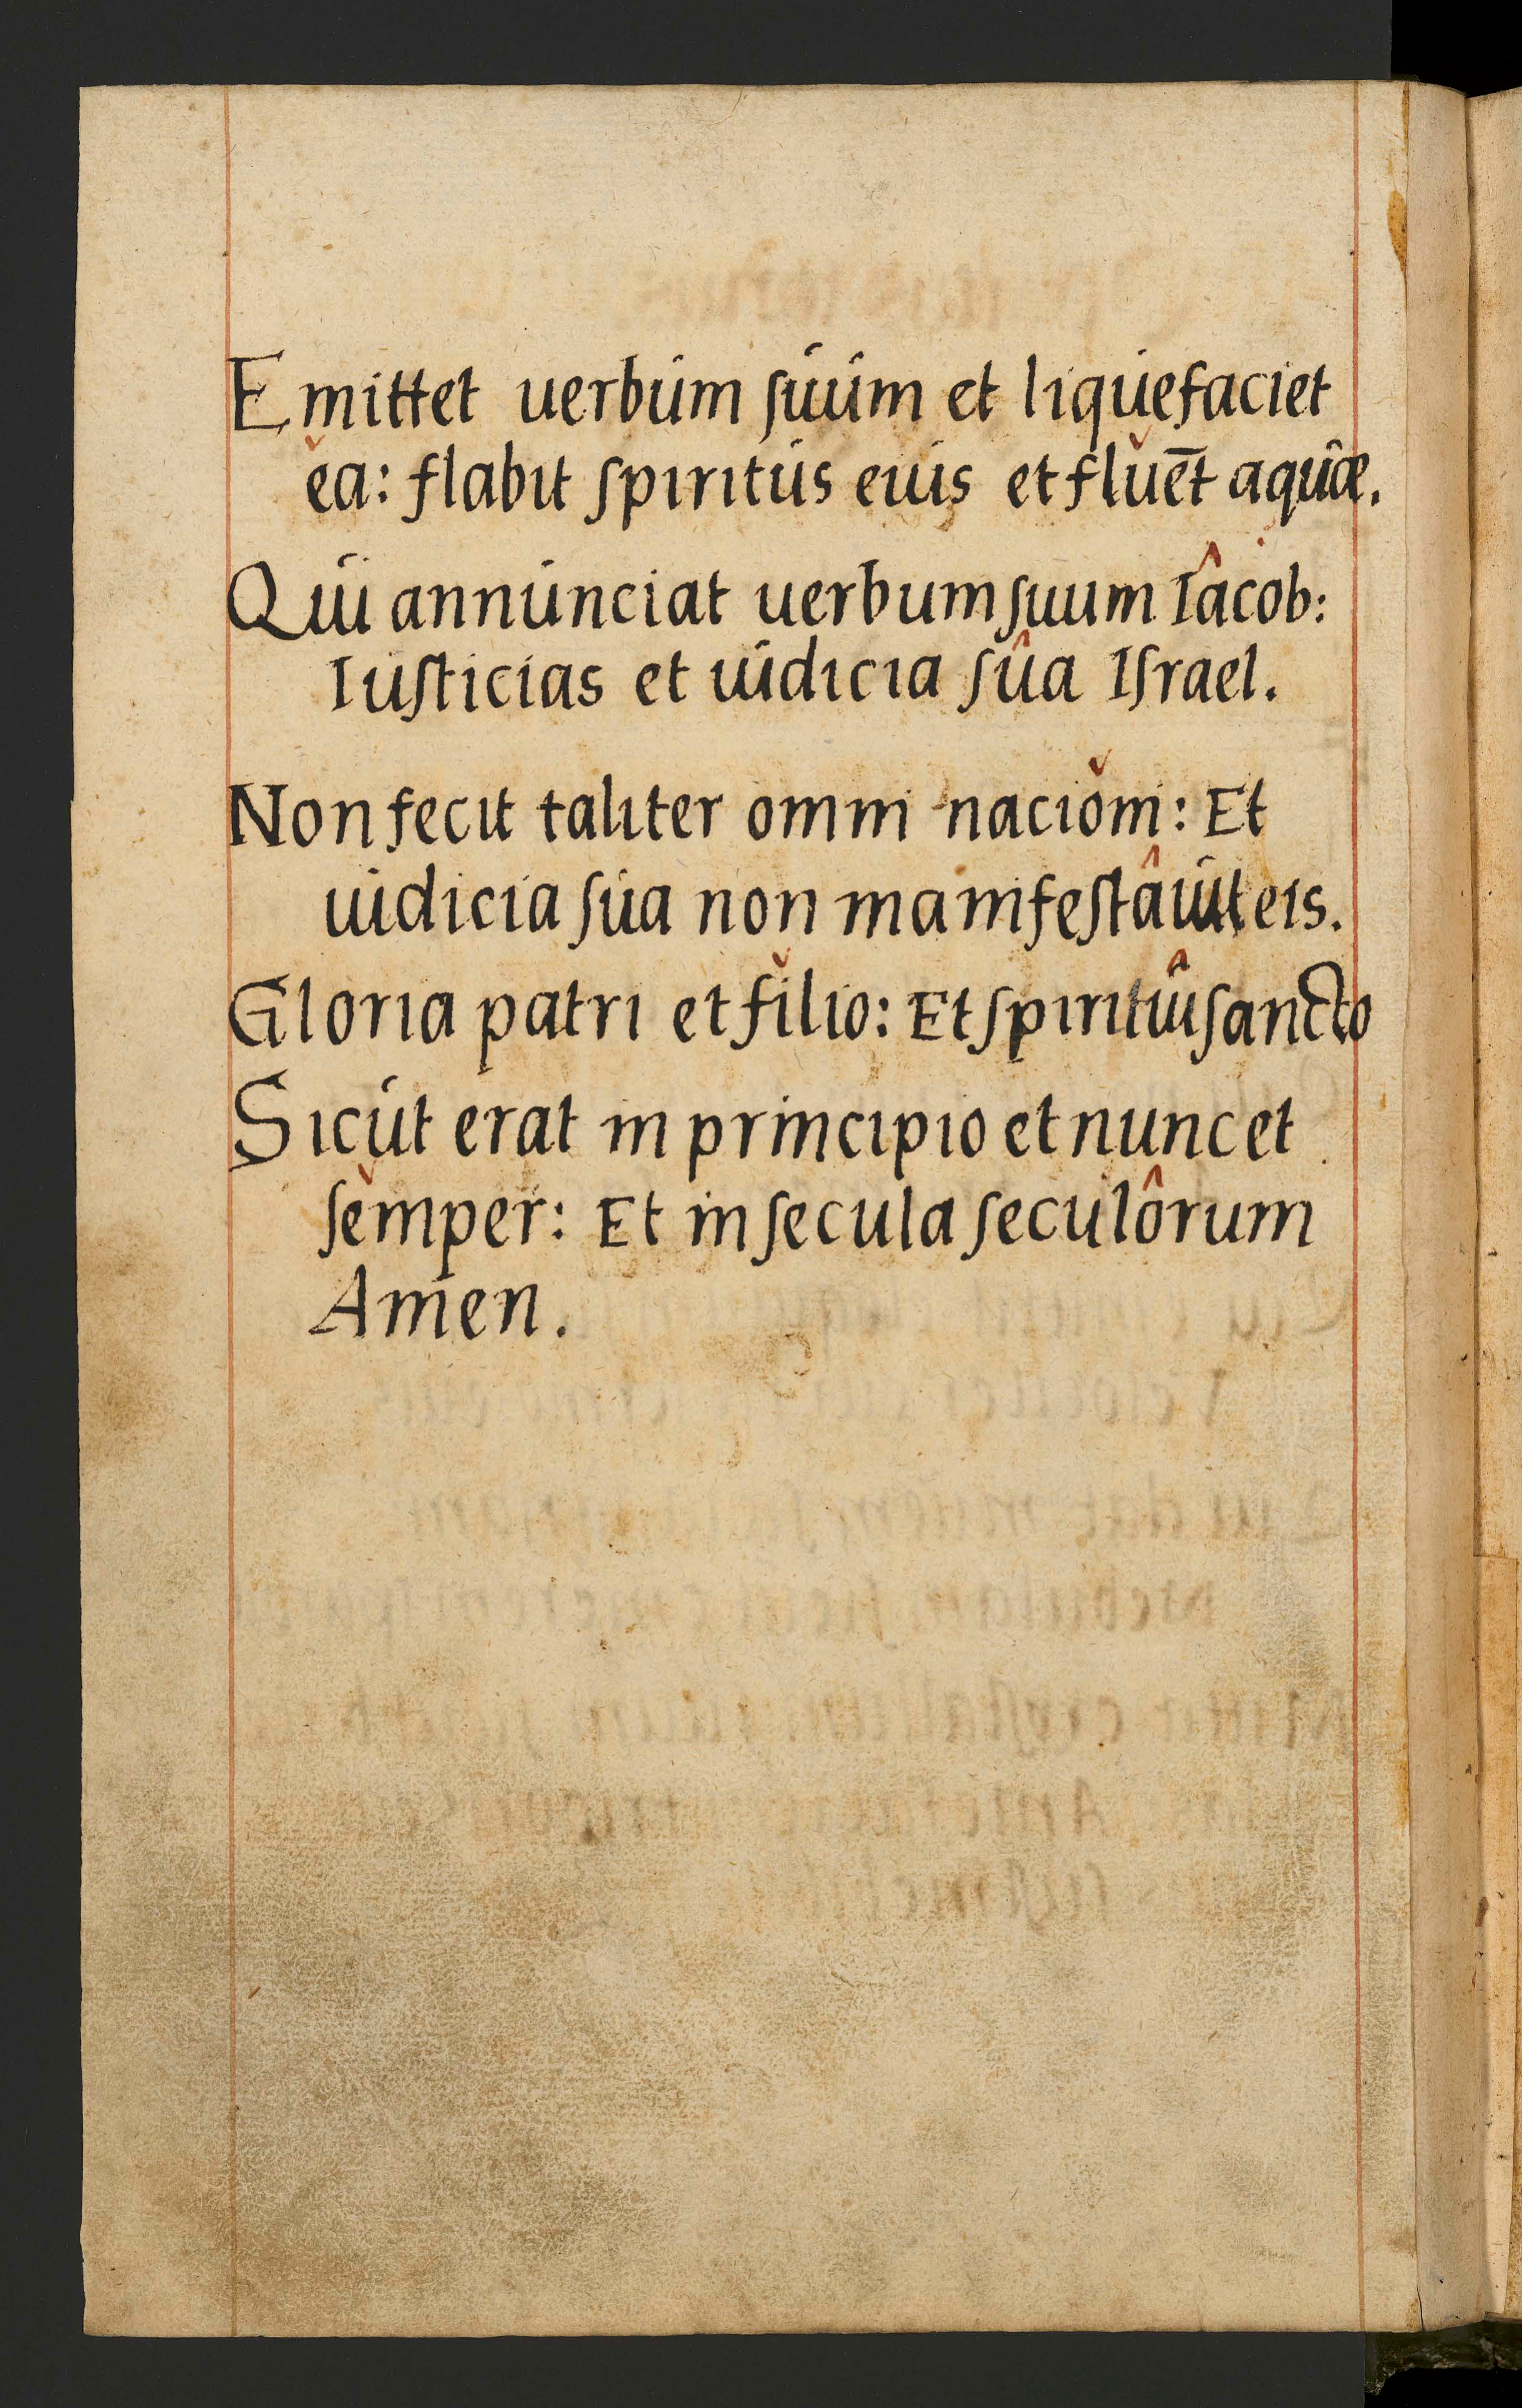 Emittet uerbum ſuum et liquefaciet
ěa: flabit ſpiritus eius et flǔēt aquæ̂.
Qui annunciat uerbum ſuum Iâcob:
Iuſticias et iudicia ſûa Iſrael.
Non fecit taliter omni naciǒni: Et
iudicia ſua non manifeſtâuit eis.
Gloria patri et fǐlio: Et ſpiritûi ſancto
Sicut erat in principio et nunc et
ſěmper: Et in ſecula ſeculôrum
Amen.